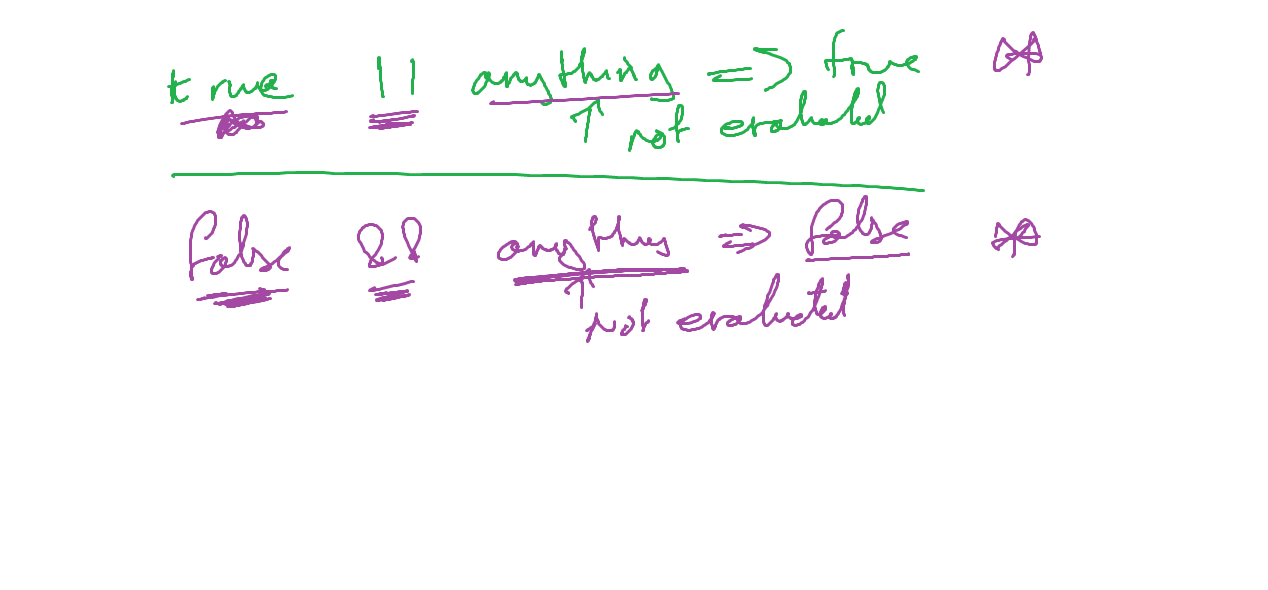 true || anything => true *
not evaluated
false && anything => false *
not evaluated